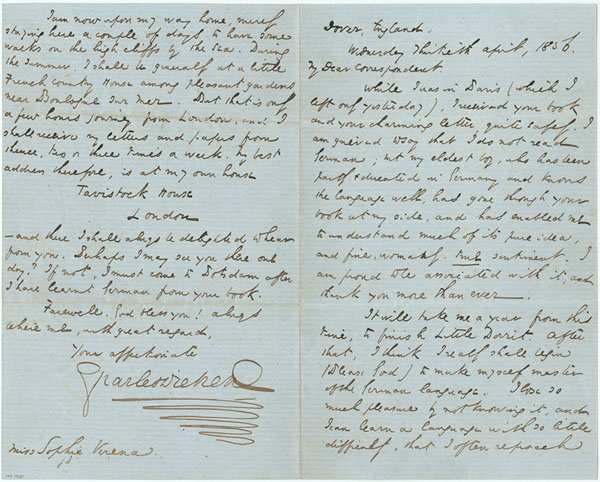 Dover, England.
Wednesday Thirtieth April, 1856.
My Dear Correspondent.
While I was in Paris (which I
left only yesterday), I received your book
and your charming letter, quite safely. I
am grieved to say that I do not read
German; but my eldest boy, who has been
partly educated in Germany and knows
the language well, has gone through your
book at my side, and has enabled me
to understand much of its pure idea,
and fine, womanly, true sentiment. I
am proud to be associated with it, and
thank you more than ever.
It will take me a year from this
time, to finish Little Dorrit. After
that, I think I really shall begin
(Please God) to make myself master
of the German language. I lose so
much pleasure by not knowing it, and
I can learn a language with so little
difficulty, that I often reproach
I am now upon my way home, merely
staying here a couple of days, to have some
walks on the high cliffs by the sea. During
the summer, I shall be generally at a little
French Country House among pleasant gardens
near Boulogne Sur Mer. But that is only
a few hours journey from London, and I
shall receive my letters and papers from
thence, two or three times a week. My best
address therefore, is at my own house
Tavistock House
London
—and there I shall always be delighted to hear
from you. Perhaps I may see you there one
day? If not, I must come to Potsdam after
I have learnt German from your book.
Farewell. God bless you! Always
believe me, with great regard,
Your affectionate
Charles Dickens
Miss Sophie Verena.